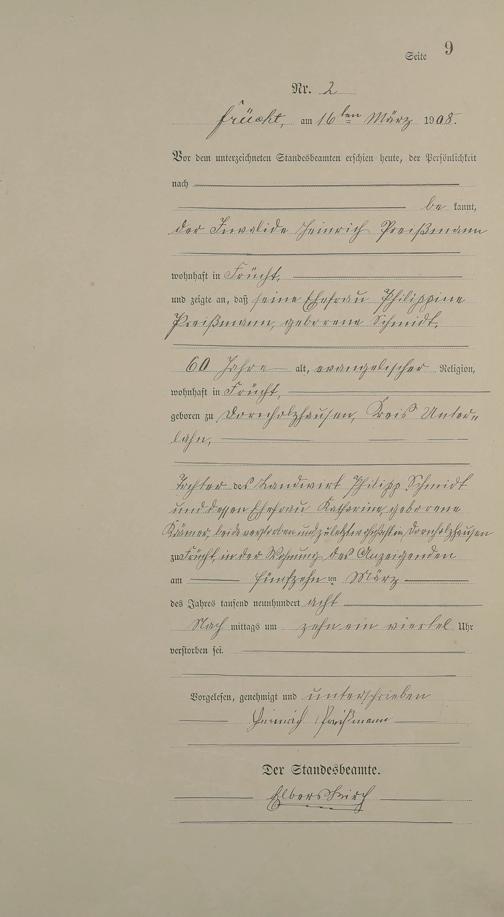 Seite 9
Nr. 2
Frücht, am 16ten März 1908.
Vor dem unterzeichneten Standesbeamten erschien heute, der Persönlichkeit
nach
be kannt,
der Invalide Heinrich Preißmann
wohnhaft in Frücht,
und zeigte an, daß seine Ehefrau Philippine
Preißmann, geborene Schmidt,
60 Jahre alt, evangelischer Religion,
wohnhaft in Frücht,
geboren zu Dornholzhausen, Kreis Unter-
lahn,
Tochter des Landwirt Philipp Schmidt
und dessen Ehefrau Katharina geborene
Krämer, beide verstorben und zuletzt wohnhaft in Dornholzhausen
zu Frücht, in der Wohnung des Anzeigenden
am fünfzehnten März
des Jahres tausend neunhundert acht
Nach mittags um zehn ein viertel Uhr
verstorben sei.
Vorgelesen, genehmigt und unterschrieben
Heinrich Preißmann
Der Standesbeamte.
Elberskirch